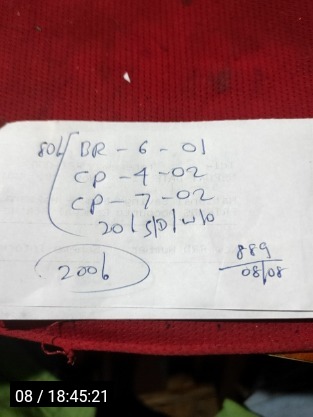 806 BR - 6 - 01
CP - 4 - 02
CP - 7 - 02
20 | S/D/W/O
2006
889
08/08
08 / 18:45:21